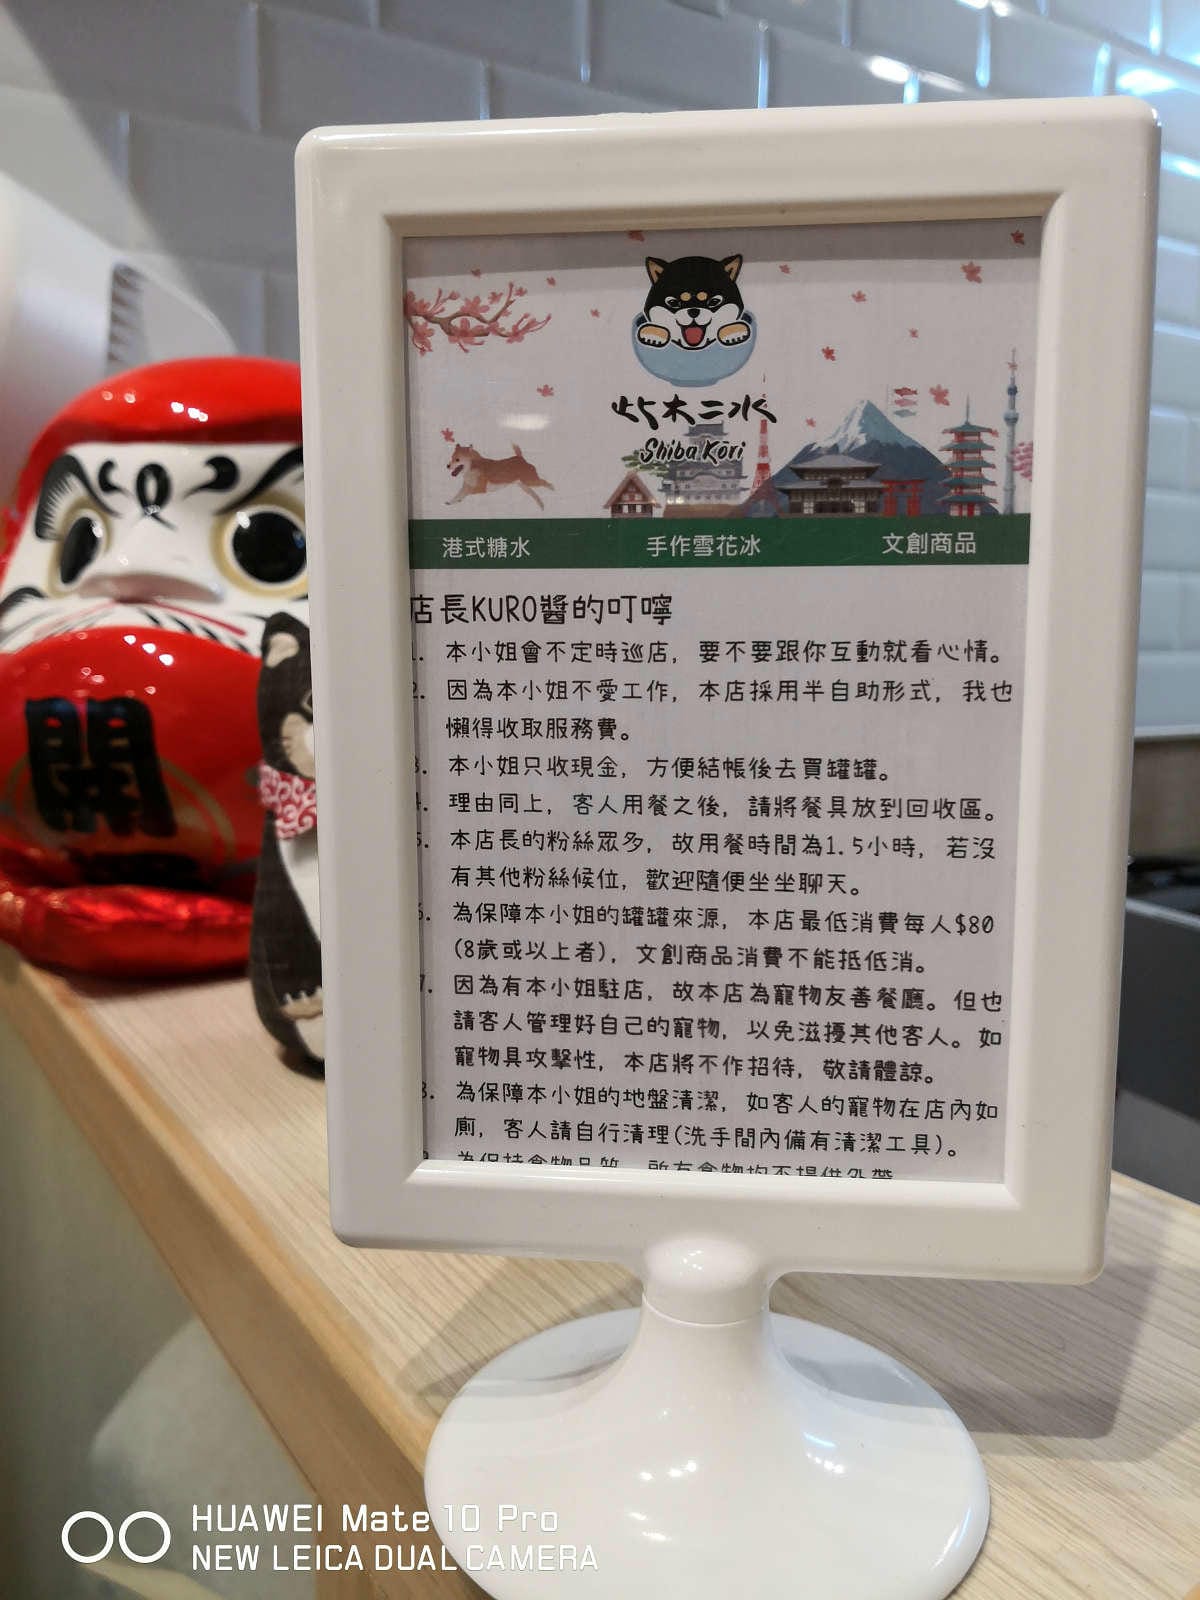 柴木二氷
Shiba Kōri
港式糖水 手作雪花冰 文創商品
店長KURO醬的叮嚀
1. 本小姐會不定時巡店, 要不要跟你互動就看心情。
2. 因為本小姐不愛工作, 本店採用半自助形式, 我也
懶得收取服務費。
3. 本小姐只收現金, 方便結帳後去買罐罐。
4. 理由同上, 客人用餐之後, 請將餐具放到回收區。
5. 本店長的粉絲眾多, 故用餐時間為1.5小時, 若沒
有其他粉絲候位, 歡迎隨便坐坐聊天。
6. 為保障本小姐的罐罐來源, 本店最低消費每人$80
(8歲或以上者), 文創商品消費不能抵低消。
7. 因為有本小姐駐店, 故本店為寵物友善餐廳。但也
請客人管理好自己的寵物, 以免滋擾其他客人。如
寵物具攻擊性, 本店將不作招待, 敬請體諒。
8. 為保障本小姐的地盤清潔, 如客人的寵物在店內如
廁, 客人請自行清理(洗手間內備有清潔工具)。
為保持食物品質, 所有食物均不提供外帶
開
HUAWEI Mate 10 Pro
NEW LEICA DUAL CAMERA